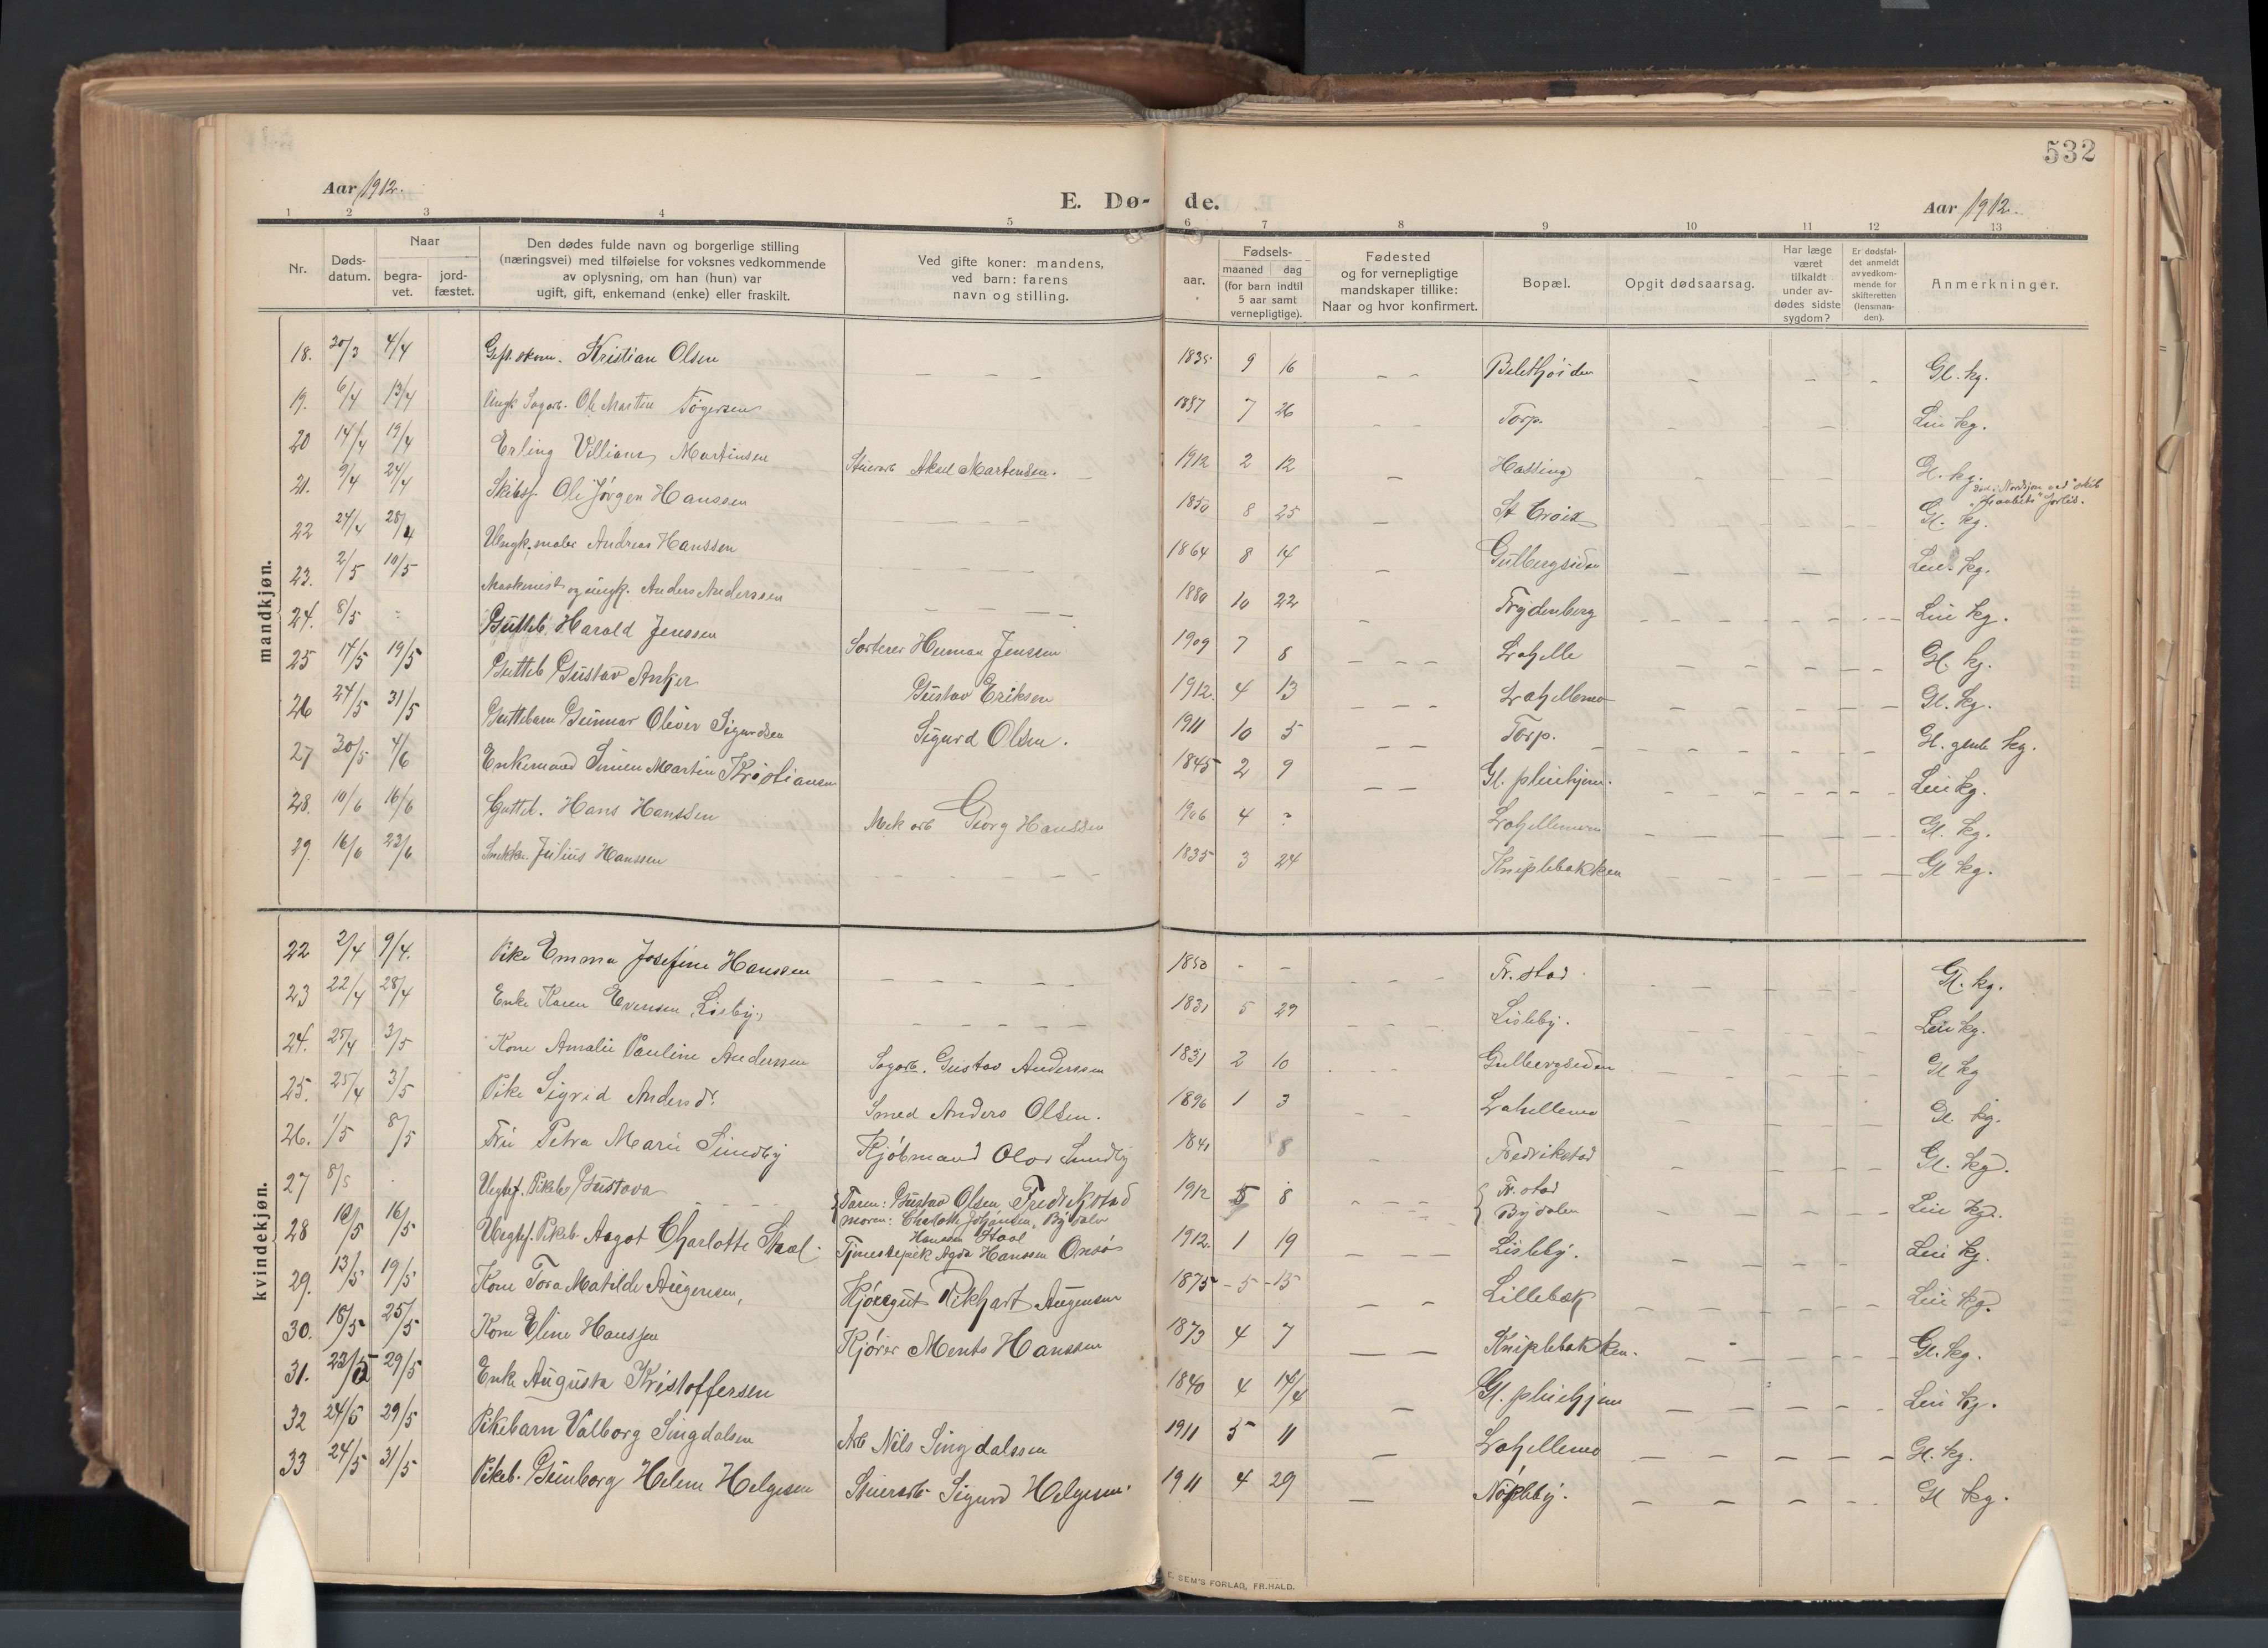 532
Aar 1912. E. Dø- de. Aar 1912.
1 2 3 4 5 6 7 8 9 10 11 12 13
Nr.
Døds-
datum.
Naar
begra-
vet.
jord-
fæstet.
Den dødes fulde navn og borgerlige stilling
(næringsvei) med tilføielse for voksnes vedkommende
av oplysning, om han (hun) var
ugift, gift, enkemand (enke) eller fraskilt.
Ved gifte koner: mandens,
ved barn: farens
navn og stilling.
aar.
Fødsels-
maaned dag
(for barn indtil
5 aar samt
vernepligtige).
Fødested
og for vernepligtige
mandskaper tillike:
Naar og hvor konfirmert.
Bopæl.
Opgit dødsaarsag.
Har læge
været
tilkaldt
under av-
dødes sidste
sygdom?
Er dødsfal-
det anmeldt
av vedkom-
mende for
skifteretten
(lensman-
den).
Anmerkninger.
mandkjøn.
18. 30/3 4/4 Gift. skom. Kristian Olsen – – – 1835 9 16 – – – – – Gl. kg.
19. 6/4 13/4 Ungk. Sagarb. Ole Martin 1887 7 26 – – Torp. – – Lie kg.
20 14/4 19/4 Erling Villiam Martinsen Stenarb Aksel Martensen. 1912 2 12 – Hassing Gl. kg.
21. 9/4 24/4 Skibsf. Ole Jørgen Hanssen – – – – 1850 8 25 – St Croix Gl. kg.
22 24/4 28/4 Ungk. maler Andreas Hanssen – – – – 1864 8 14 – Gulbergsiden – – Lie kg.
23. 2/5 10/5 Maskinist og ungk. Anders Anderssen – – – – 1880 10 22 – Frydenberg – – – – Lie kg.
24. 8/5 – Gutteb. Harald Jenssen Sorterer Herman Jenssen 1909 7 8 – – – Lahelle – – – – Gl. kg.
25 14/5 19/5 Gutteb Gustav Anker Gustav Eriksen 1912. 4 13 – – – Lahellemo – – – – Gl. kg.
26 24/5 31/5 Guttebarn Gunnar Oliver Sigurdsen Sigurd Olsen. 1911 10 5 – – Torp. – – – – Gl. glemb kg.
27 30/5 4/6 Enkemand Simen Martin Kristiansen 1845 2 9 – – Gl. pleiehjem. – – – – Lie kg.
28. 10/6 16/6 Gutteb. Hans Hanssen Mek arb Georg Hanssen 1906 4 ? Lahellemoen – – – – Gl. kg.
29. 16/6 23/6 Snekker. Julius Hanssen – – – – 1835 3 24 Kniplebakken – – – – Gl kg.
kvindekjøn.
22 2/4 9/4. Pike Emma Josefine Hanssen – – – – 1850 – – – – Fr.stad – – – Gl. kg.
23 22/4 28/4 Enke Karen Evensen, Lisleby, – – – – – 1831 5 29 – – – Lisleby. – – – Lie kg.
24. 25/4 3/5 Kone Amalie Pauline Anderssen Sagarb. Gustav Anderssen 1851 2 10 – – Gulbergsiden – – – Gl kg
25. 25/4 3/5 Pike Sigrid Andersd. Smed Anders Olsen. 1896 1 3 – – Lahellemo – – – Gl. kg.
26. 1/5 8/5 Fru Petra Marie Sundby Kjøbmand Olav Sundby 1841 8 – Fredrikstad – – – Gl. kg.
27 8/5 Uegtef. Pikeb. Gustava – – – Faren: Gustav Olsen, Fredrikstad
moren: Charlotte Johansen, Bydalen 1912 5 8 – – – – Fr. stad
Bydalen – – – Lie kg.
28 10/5 16/5 Uegtef. Pikeb. Aagot Charlotte Staal. Tjenestepik Agda Hanssen Onsø
Hanssen Staal 1912. 1 19 – – – Lisleby. – – – Lie kg.
29. 13/5 19/5 Kone Tora Matilde Augensen, Kjøregut Rikhart Augensen 1875 – 5 – 15 – – Lillebæk – – – Lie kg.
30. 18/5 25/5 Kone Eline Hanssen Kjører Ments Hanssen 1873 4 7 – – Kniplebakken. – – – – Gl. kg.
31. 23/5 29/5 Enke Augusta Kristoffersen 1840 4 14/4 – Gl. pleiehjem – – – – Lie kg.
32 24/5 29/5 Pikebarn Valborg Singdalsen Arb Nils Singdalssen 1911 5 11 – Lahellemo – – – – Gl. kg.
33 24/5 31/5 Pikeb. Gunborg Helene Helgesen Stenarb. Sigurd Helgesen. 1911 4 29 – Nøkleby. – – – – Gl kg.
E. SEM'S FORLAG, FR.HALD.